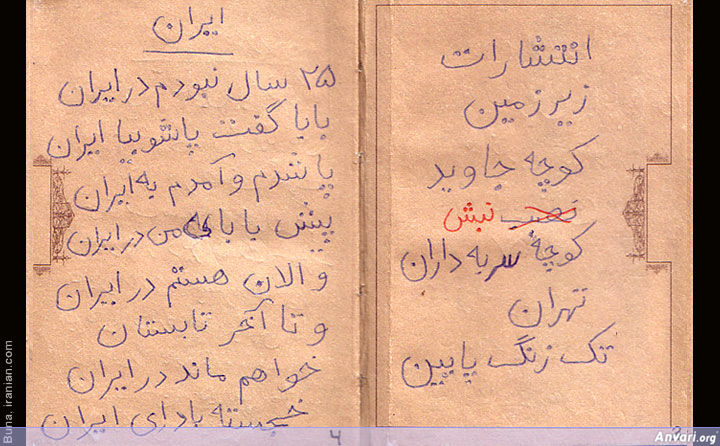 ایران
۲۵ سال نبودم در ایران
بابا گفت پاشو بیا ایران
پا شدم و آمدم به ایران
پیش بابای من در ایران
و الان هستم در ایران
و تا آخر تابستان
خواهم ماند در ایران
خجسته بادای ایران
۴
انتشارات
زیرزمین
کوچه جاوید
نبش
کوچه سربه داران
تهران
تک زنگ پایین
Buna. iranian.com
Anvari.org